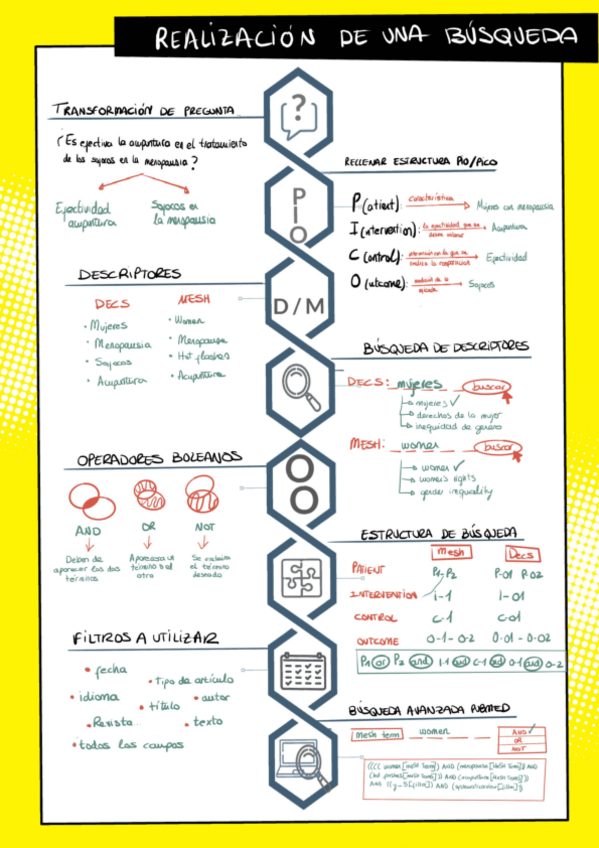 REALIZACIÓN DE UNA BÚSQUEDA
TRANSFORMACIÓN DE PREGUNTA
¿Es efectiva la acupuntura en el tratamiento
de los sofocos en la menopausia?
Efectividad
acupuntura
Sofocos en
la menopausia
?
RELLENAR ESTRUCTURA PIO/PICO
P
I
O
P(atient): característica Mujeres con menopausia
I(ntervention): la efectividad que se
desea valorar
Acupuntura
C(ontrol): intervención con la que se
realiza la comparación
Efectividad
O(utcome): Sofocos
DESCRIPTORES
DECS
• Mujeres
• Menopausia
• Sofocos
• Acupuntura
MESH
• Women
• Menopause
• Hot flashes
• Acupuntura
D/M
BÚSQUEDA DE DESCRIPTORES
DECS: mujeres buscar
mujeres ✓
derechos de la mujer
inequidad de genero
MESH: women buscar
women ✓
women's rights
gender inequality
OPERADORES BOLEANOS
AND
Deben de
aparecer los dos
términos
OR
Aparezca un
término o el
otro
NOT
Se excluirá
el término
deseado
O
O
ESTRUCTURA DE BÚSQUEDA
Mesh Decs
PATIENT P1-P2 P-01 P-02
INTERVENTION I-1 I-01
CONTROL C-1 C-01
OUTCOME O-1-O-2 O-01-O-02
P1 or P2 and I-1 and C-1 and O-1 and O-2
FILTROS A UTILIZAR
• fecha
• Tipo de artículo
• idioma
• autor
• título
• Revista
• texto
• todos los campos
BÚSQUEDA AVANZADA PUBMED
Mesh term women
AND ✓
OR
NOT